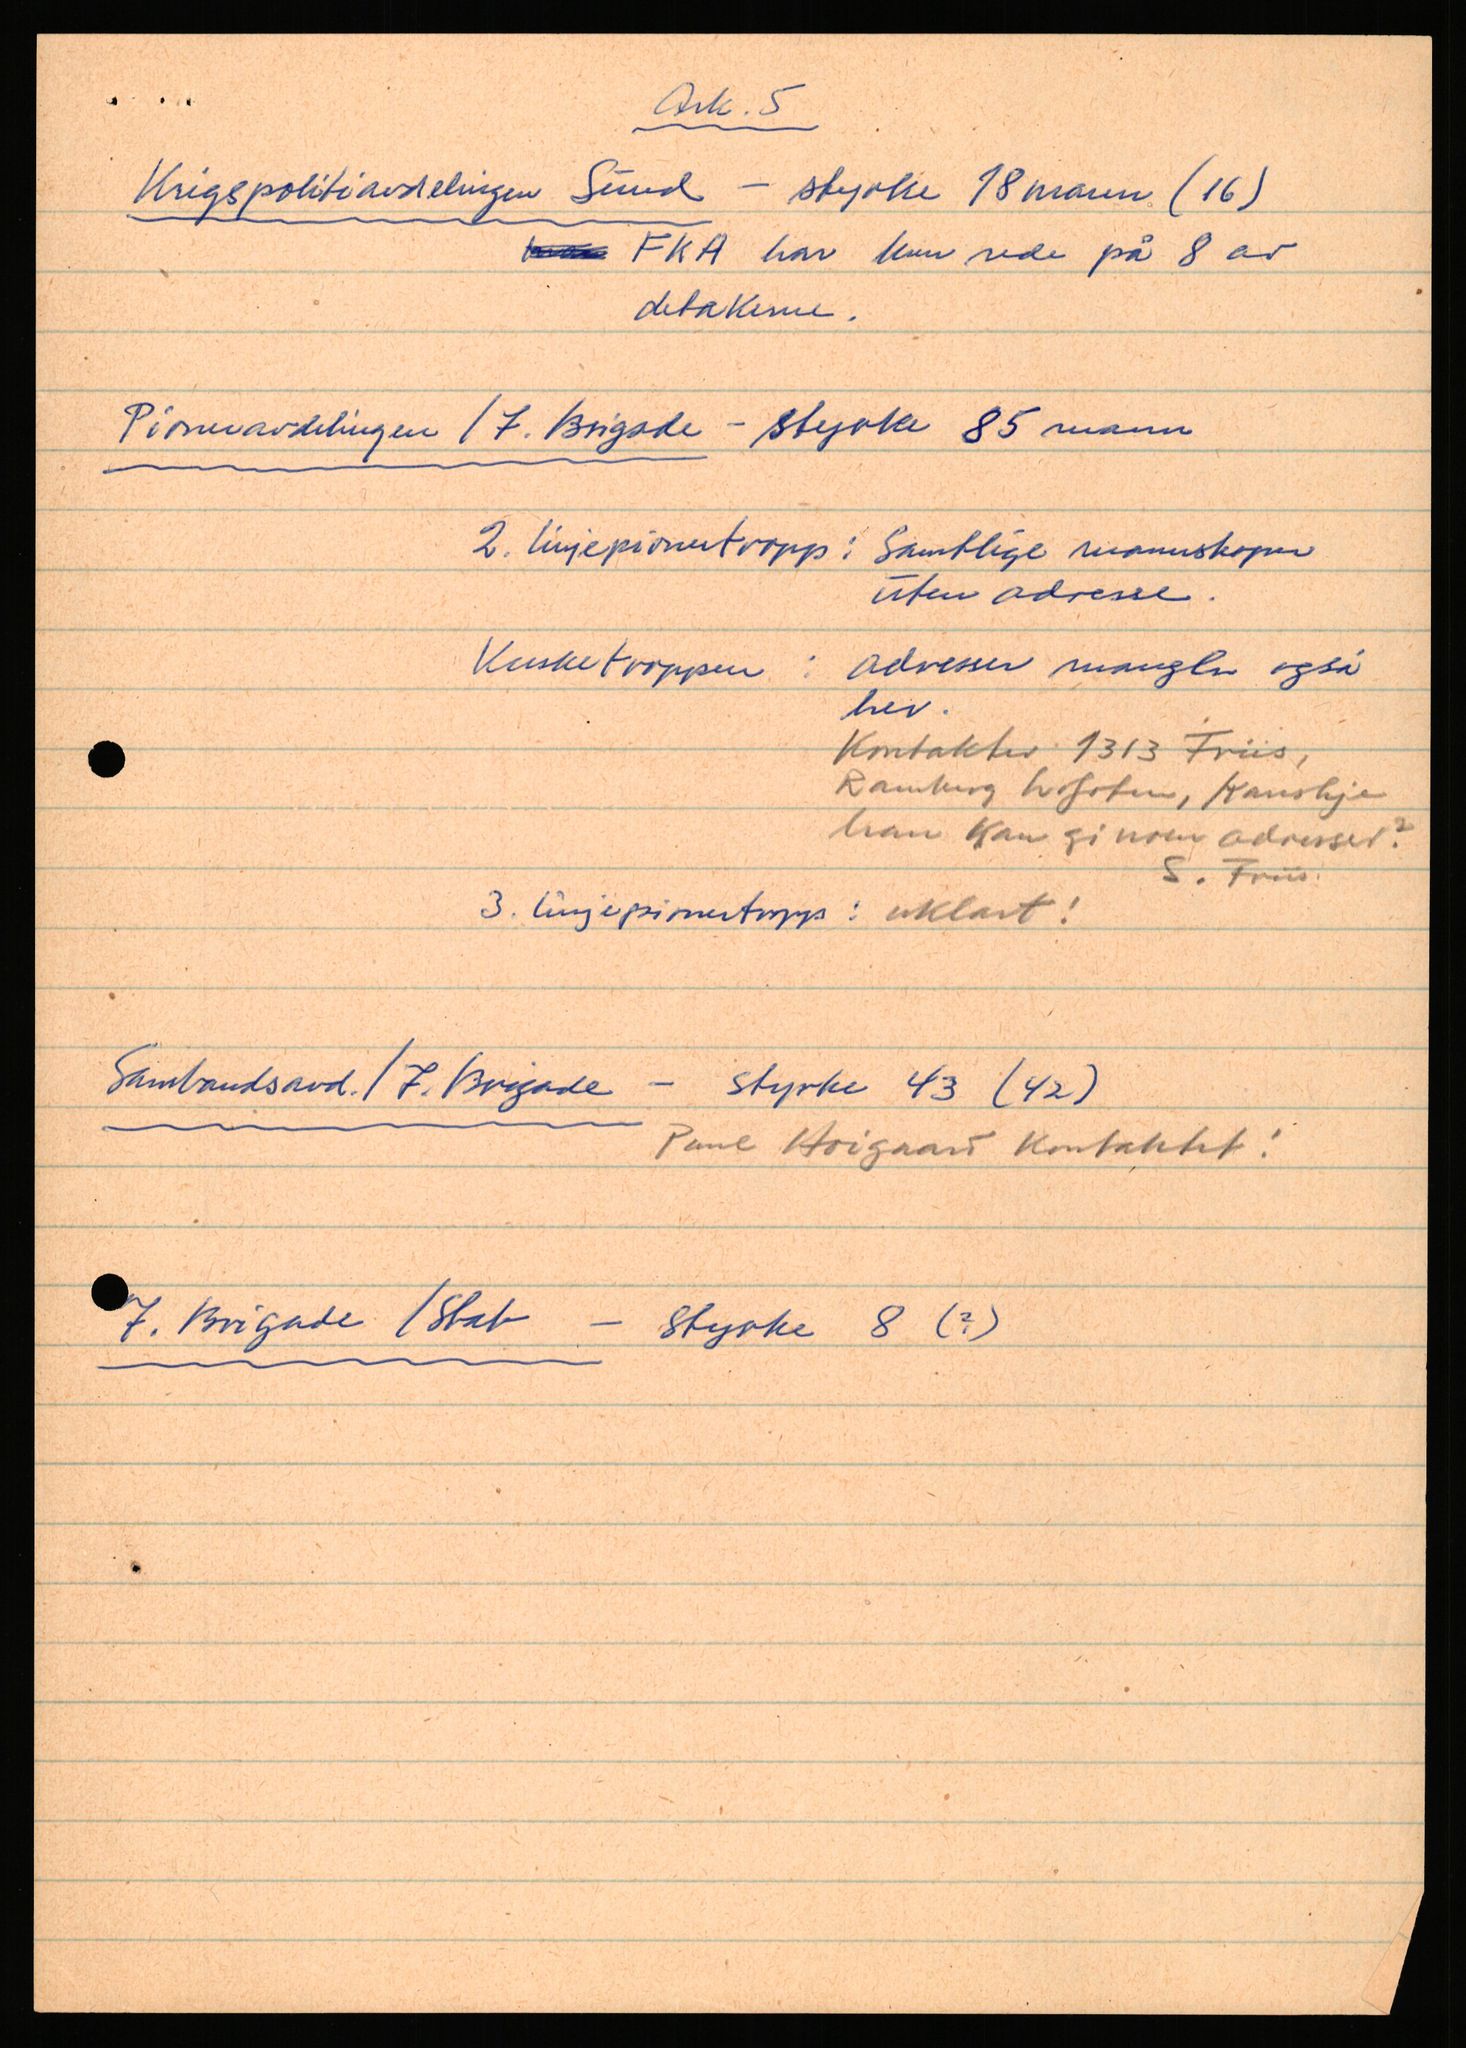 Ark. 5
Krigspolitiavdelingen Sund – styrke 18 mann (16)
FKA har kun rede på 8 av
deltakerne.
Pioneravdelingen / 7. Brigade – styrke 85 mann
2. linjepionertropp : Samtlige mannskaper
uten adresse.
Kusketroppen : adresser mangler også
her.
Kontakter 1313 Friis,
Ramberg Lofoten, kanskje
han kan gi noen adresser?
S. Friis.
3. linjepionertropp : uklart!
Sambandsavd. / 7. Brigade – styrke 43 (42)
Hoigaard kontaktet!
7. Brigade / Stab – styrke 8 (?)